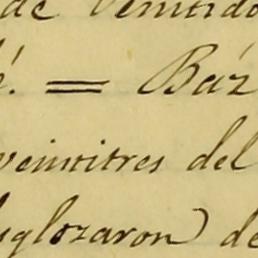 de Veintido
é. = Báz
veintitres del
sglozaron) de